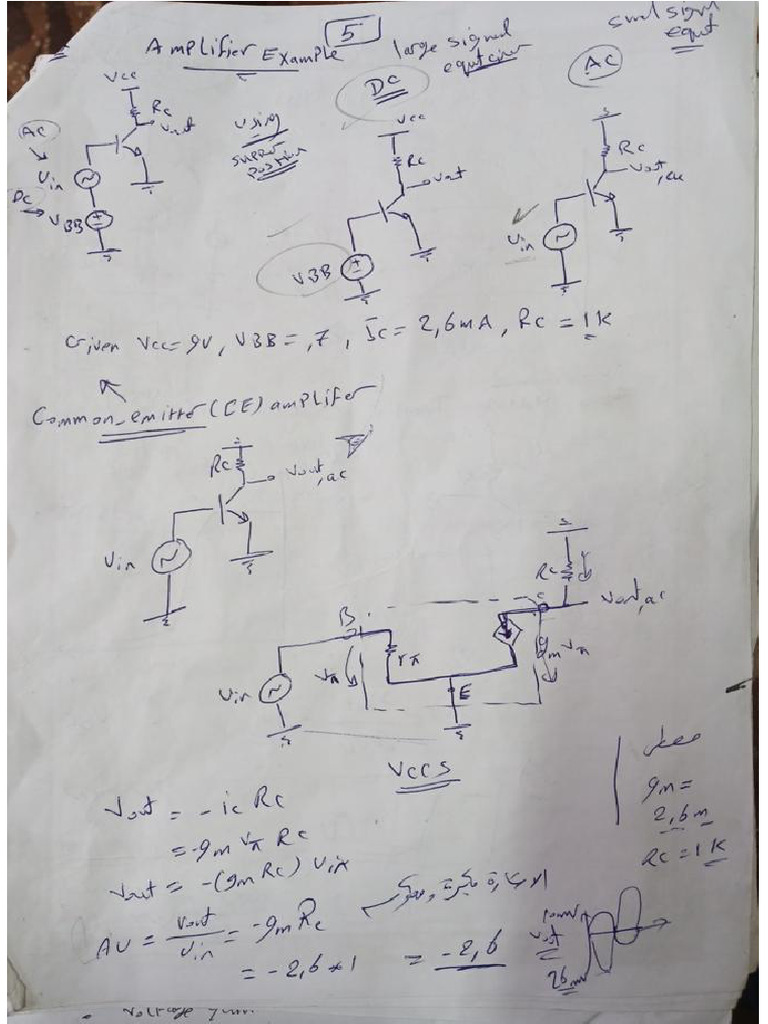 5
Amplifier Example
large signal
DC
small signal
AC
Vcc
Rc
Vout
AC
Vin
DC
VBB
using
super
position
Vcc
Rc
Vout
VBB
Rc
Vout,
Vin
Given Vcc=9V, VBB=,7, Ic=2,6mA, Rc=1K
Common-emitter (CE) amplifer
Rc
Vout,ac
Vin
Rc
Vout,ac
B
C
rπ
Vπ
gmVπ
Vin
E
VCCS
Vout = -ic Rc
= -gm Vπ Rc
Vout = -(gm Rc) Vin
Av = Vout/Vin = -gm Rc
= -2,6*1 = -2,6
gm =
2,6m
Rc=1K
الاشارة
Vout
26m